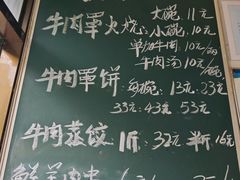 牛肉罩火烧:大碗:11元
小碗:10元
单加牛肉:10元/
牛肉汤:10元/碗
牛肉罩饼:每碗:13元.23元
33元.43元.53元
牛肉蒸饺 1斤:32元 半斤16元